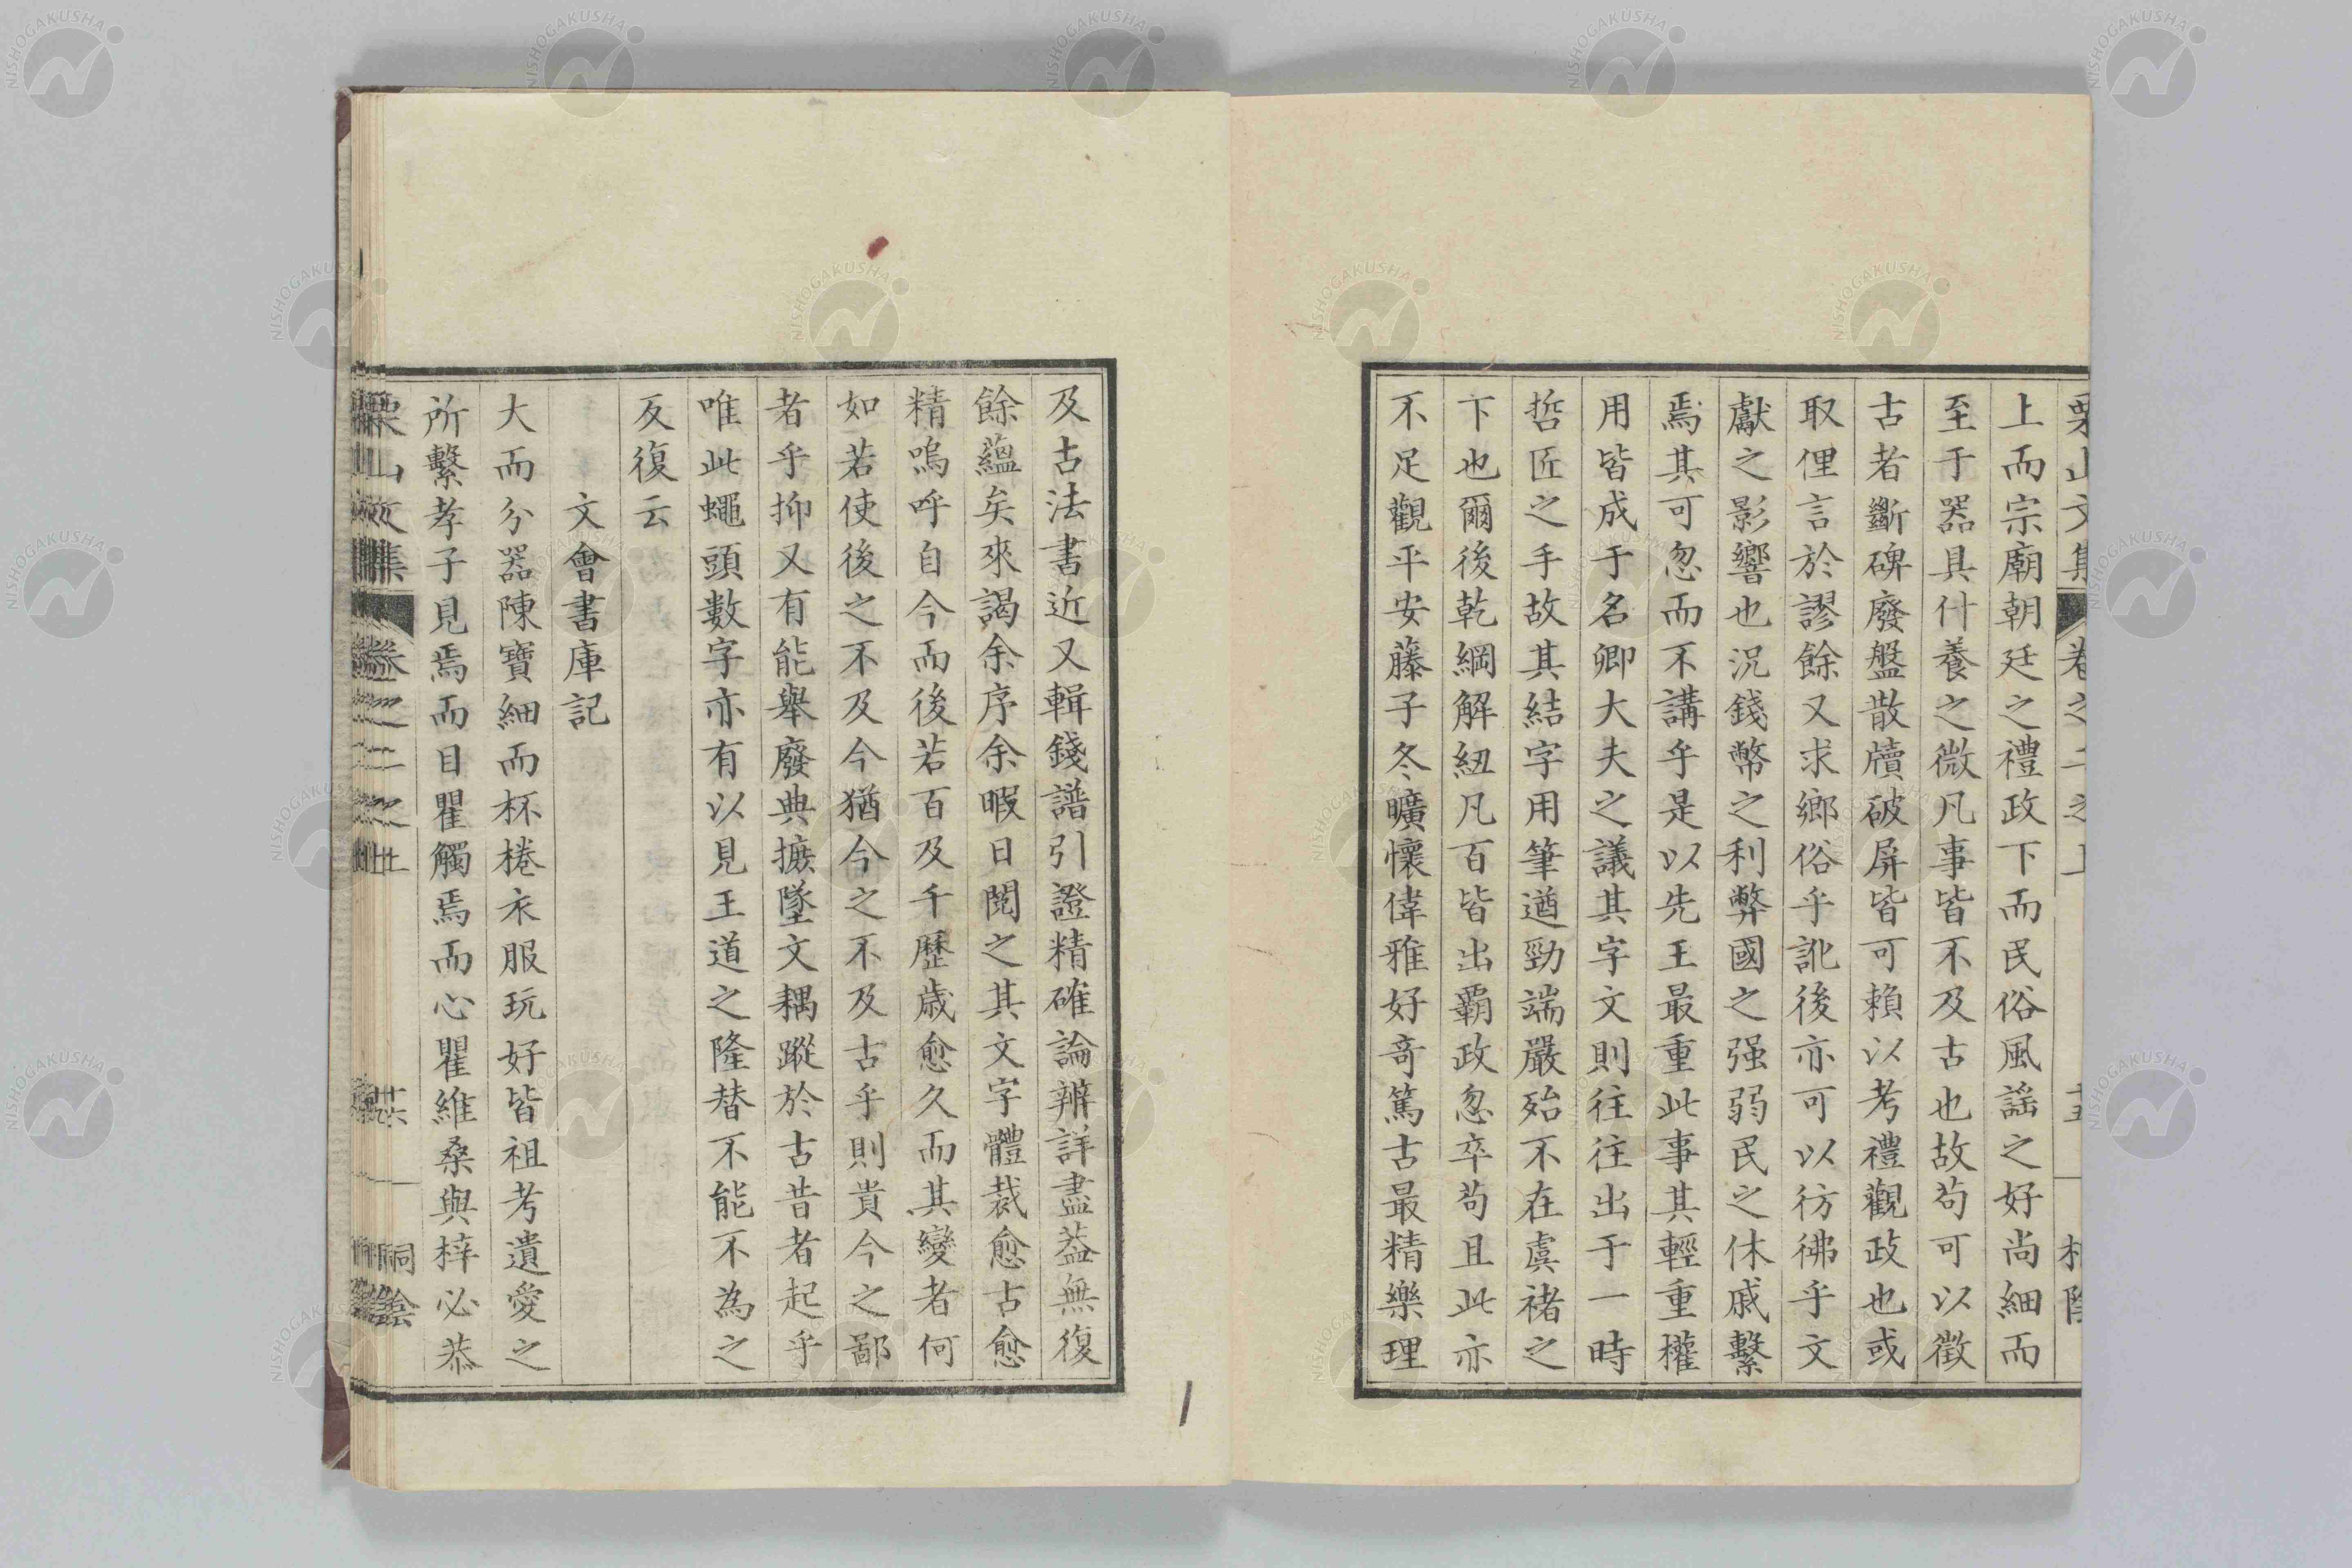 上而宗廟朝廷之禮政下而民俗風謡之好尚細而
至于器具什養之微凡事皆不及古也故苟可以徵
古者斷碑廢盤散牘破屏皆可賴以考禮觀政也或
取俚言於謬餘又求鄉俗乎訛後亦可以彷彿乎文
獻之影響也況錢幣之利弊國之强弱民之休戚繫
焉其可忽而不講乎是以先王最重此事其輕重權
用皆成于名卿大夫之議其字文則往往出于一時
哲匠之手故其結字用筆遒勁端嚴殆不在虞褚之
下也爾後乾綱解紐凡百皆出覇政忽卒苟且此亦
不足觀平安藤子冬曠懷偉雅好奇篤古最精樂理
及古法書近又輯錢譜引證精確論辨詳盡葢無復
餘蘊矣來謁余序余暇日閲之其文字體裁愈古愈
精嗚呼自今而後若百及千歷歲愈久而其變者何
如若使後之不及今猶今之不及古乎則貴今之鄙
者乎抑又有能舉廢典摭墜文耦蹤於古昔者起乎
唯此蠅頭數字亦有以見王道之隆替不能不為之
反復云
文會書庫記
大而分器陳寶細而杯棬衣服玩好皆祖考遺愛之
所繫孝子見焉而目瞿觸焉而心瞿維桑與梓必恭
栗山文集
卷之二之上
NISHOGAKUSHA